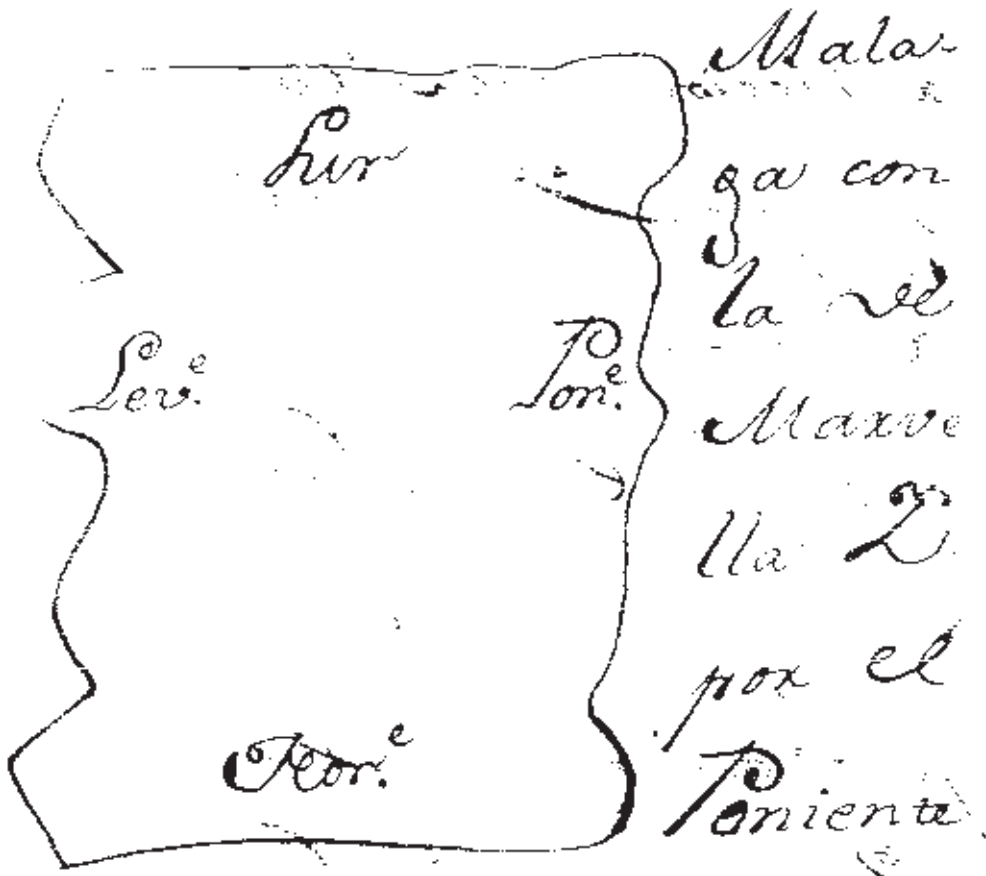 Sur
Lev.e
Pon.e
Nor.e
Mala-
ga con
la de
Maxve
lla 2
por el
Poniente